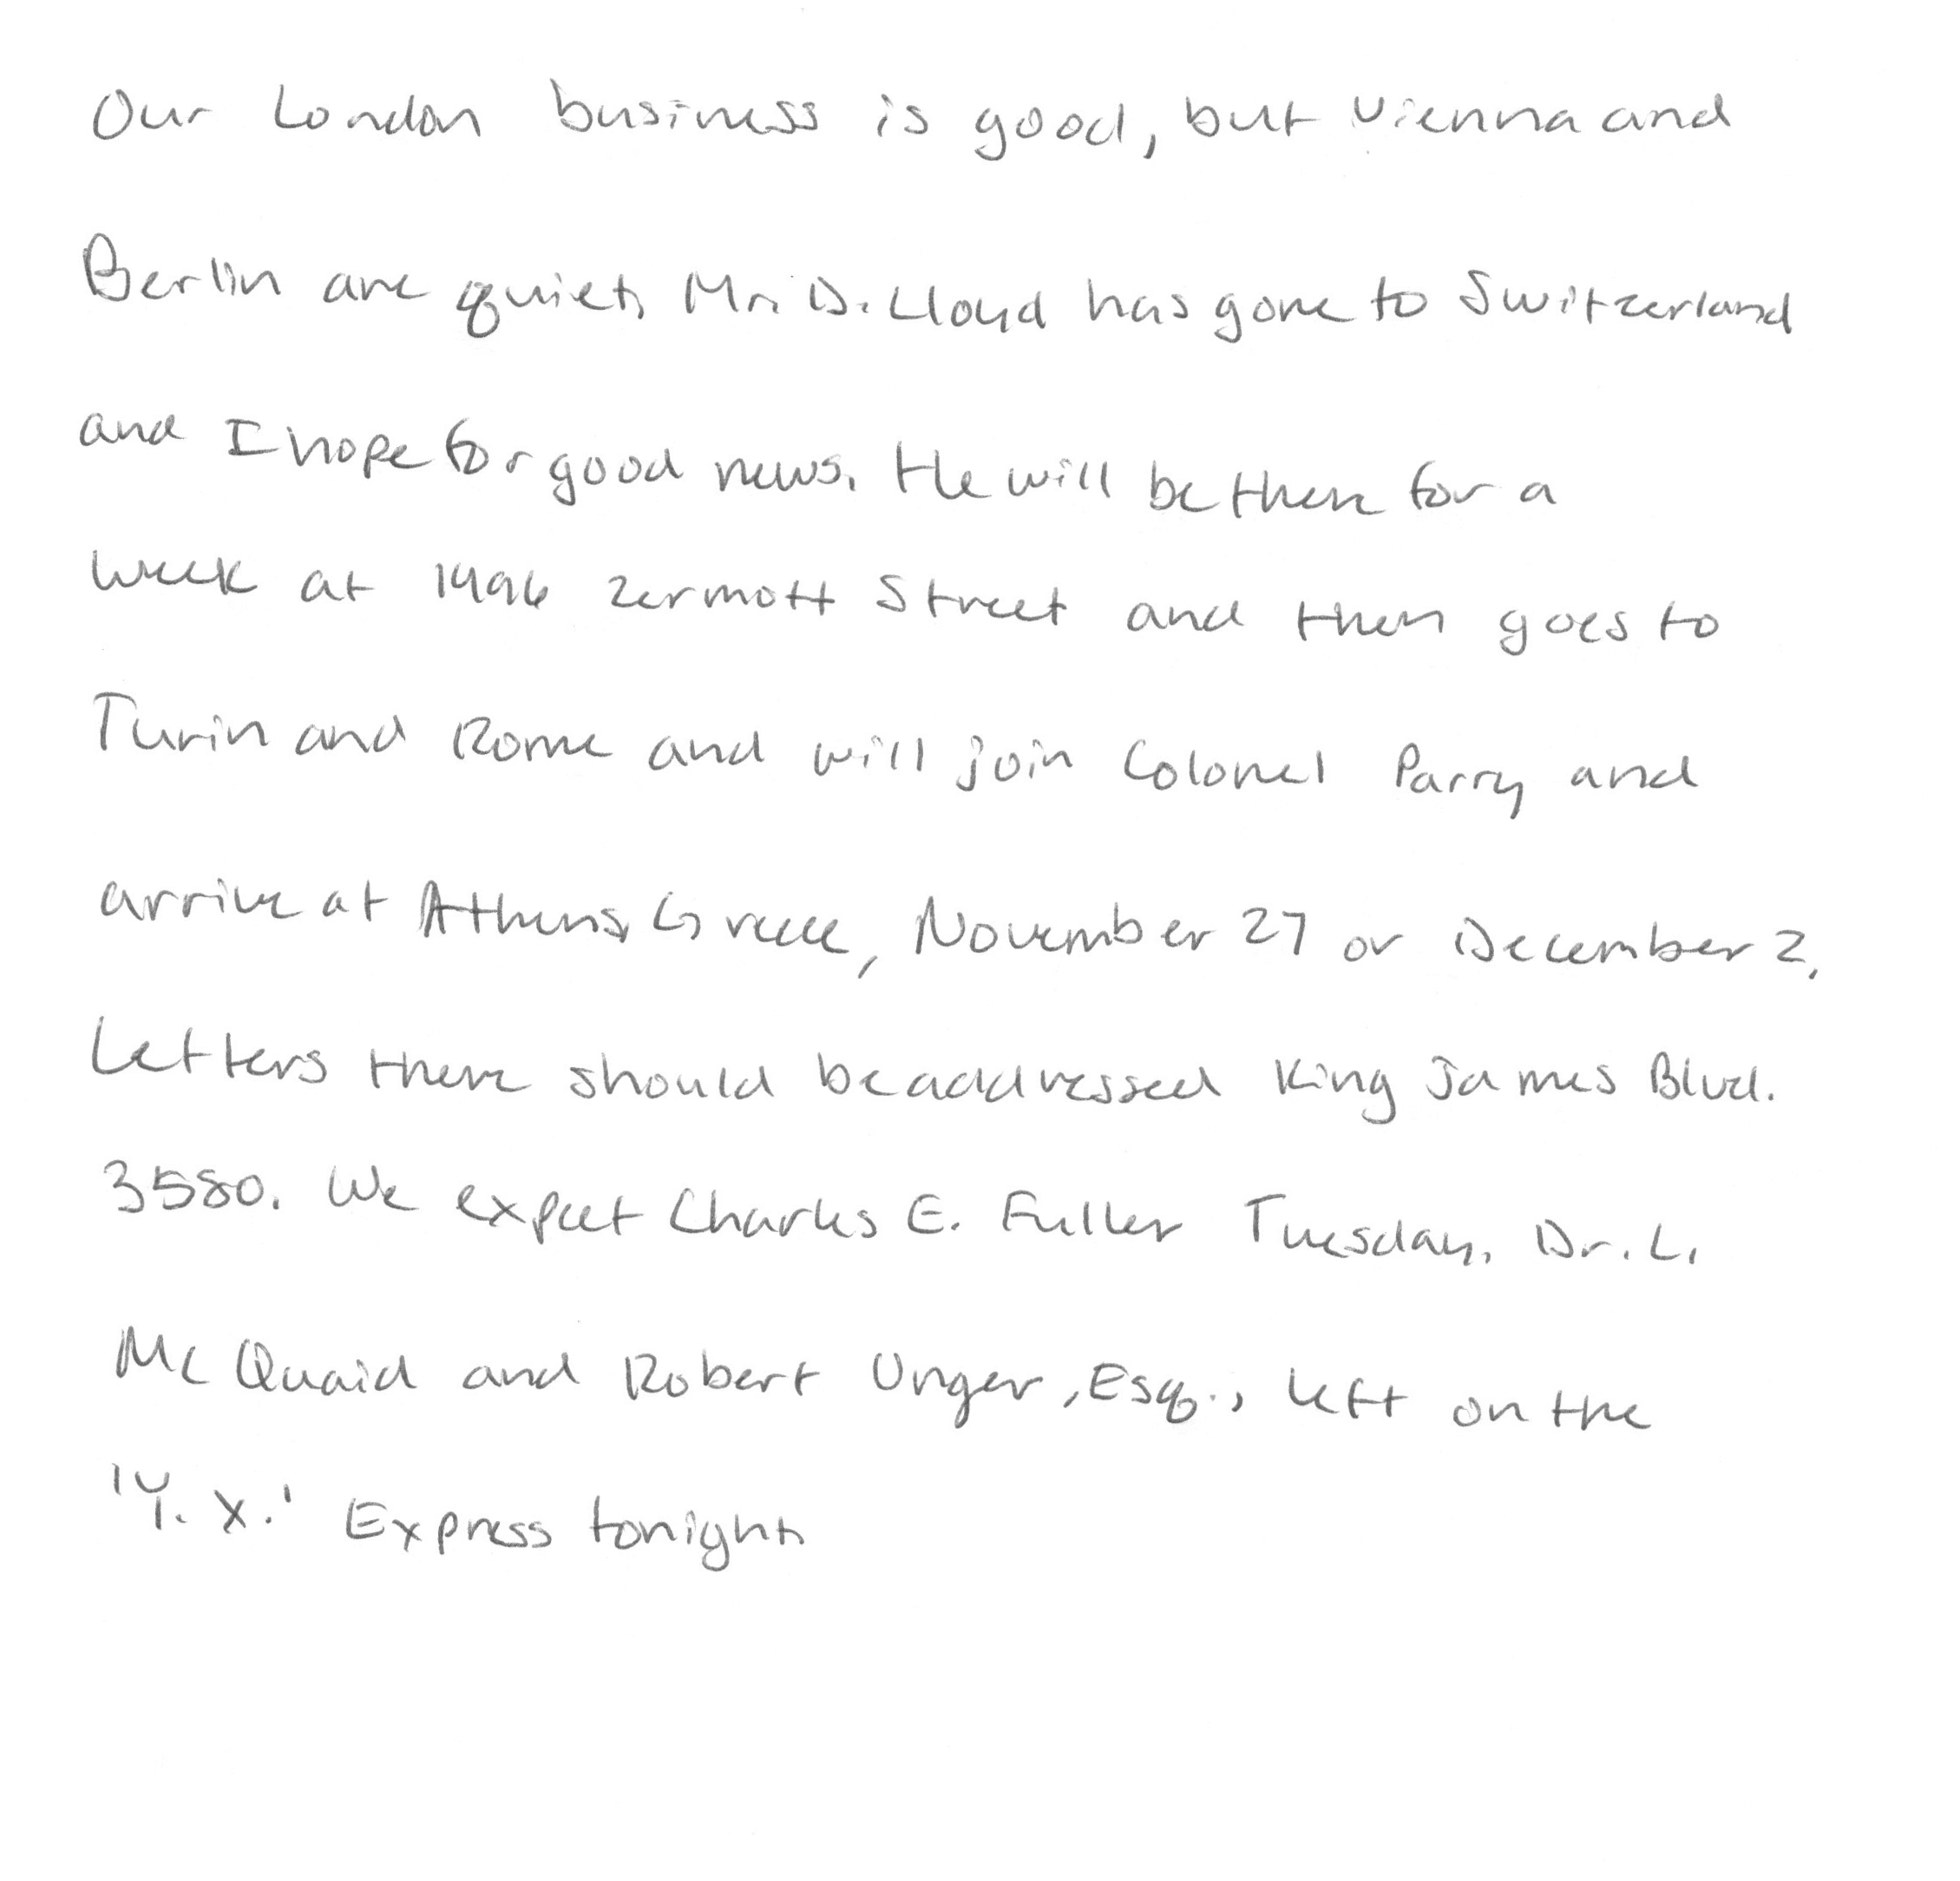 Our London business is good, but Vienna and
Berlin are quiet. Mr. D. Lloyd has gone to Switzerland
and I hope for good news. He will be there for a
week at 1496 Zermott Street and then goes to
Turin and Rome and will join Colonel Parry and
arrive at Athens, Greece, November 27 or December 2.
Letters there should be addressed King James Blvd.
3580. We expect Charles E. Fuller Tuesday. Dr. L.
McQuaid and Robert Unger, Esq., left on the
'Y. X.' Express tonight.